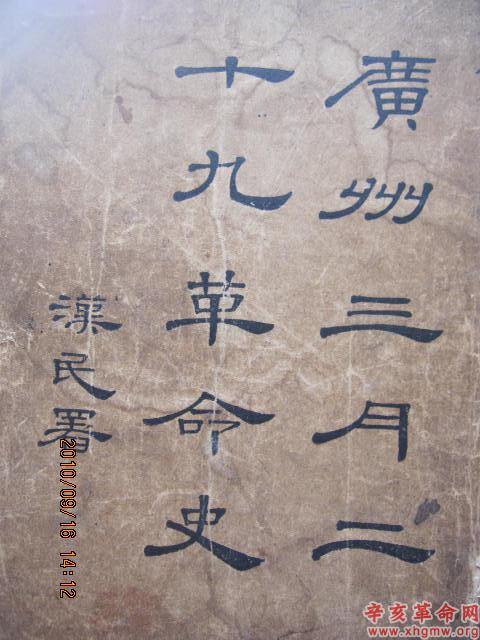 廣州三月二
十九革命史
漢民署
2010/09/16 14:12
辛亥革命网
www.xhgmw.org